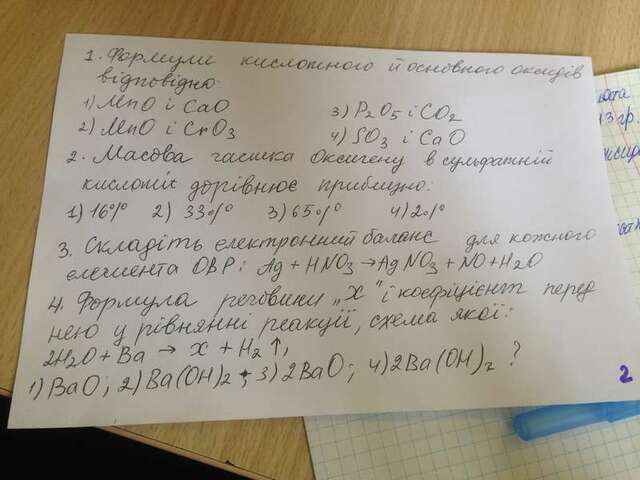 1. Формули кислотного й основного оксидів
відповідно:
1) MnO і CaO 3) P2O5 і CO2
2) MnO і CrO3 4) SO3 і CaO
2. Масова частка оксигену в сульфатній
кислоті дорівнює приблизно:
1) 16% 2) 33% 3) 65% 4) 2%
3. Складіть електронний баланс для кожного
елемента ОВР: Ag + HNO3 → AgNO3 + NO + H2O
4. Формула речовини "х" і коефіцієнт перед
нею у рівнянні реакції, схема якої:
2H2O + Ba → х + H2↑,
1) BaO; 2) Ba(OH)2; 3) 2BaO; 4) 2Ba(OH)2 ?
2
13 гр